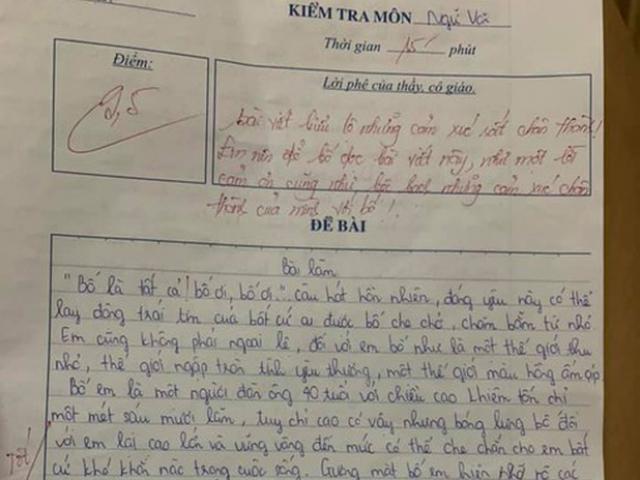 KIỂM TRA MÔN Ngữ Văn
Thời gian 15' phút
Điểm:
9,5
Lời phê của thầy, cô giáo.
bài viết biểu lộ những cảm xúc rất chân thành!
Em nên để bố đọc bài viết này, như một lời
cảm ơn cũng như bộc bạch những cảm xúc chân
thành của mình với bố!
ĐỀ BÀI
Bài làm
"Bố là tất cả! bố ơi, bố ơi.." câu hát hồn nhiên, đáng yêu này có thể
lay động trái tim của bất cứ ai được bố che chở, chăm bẵm từ nhỏ
Em cũng không phải ngoại lệ, đối với em bố như là một thế giới thu
nhỏ, thế giới ngập tràn tình yêu thương, một thế giới màu hồng ấm áp.
Bố em là một người đàn ông 40 tuổi với chiều cao khiêm tốn chỉ
một mét sáu mươi lăm, tuy chỉ cao có vậy nhưng bóng lưng bố đối
với em lại cao lớn và vững vàng đến mức có thể che chắn cho em bất
Tốt!
cứ khó khăn nào trong cuộc sống. Gương mặt bố em hiện nhờ rõ các